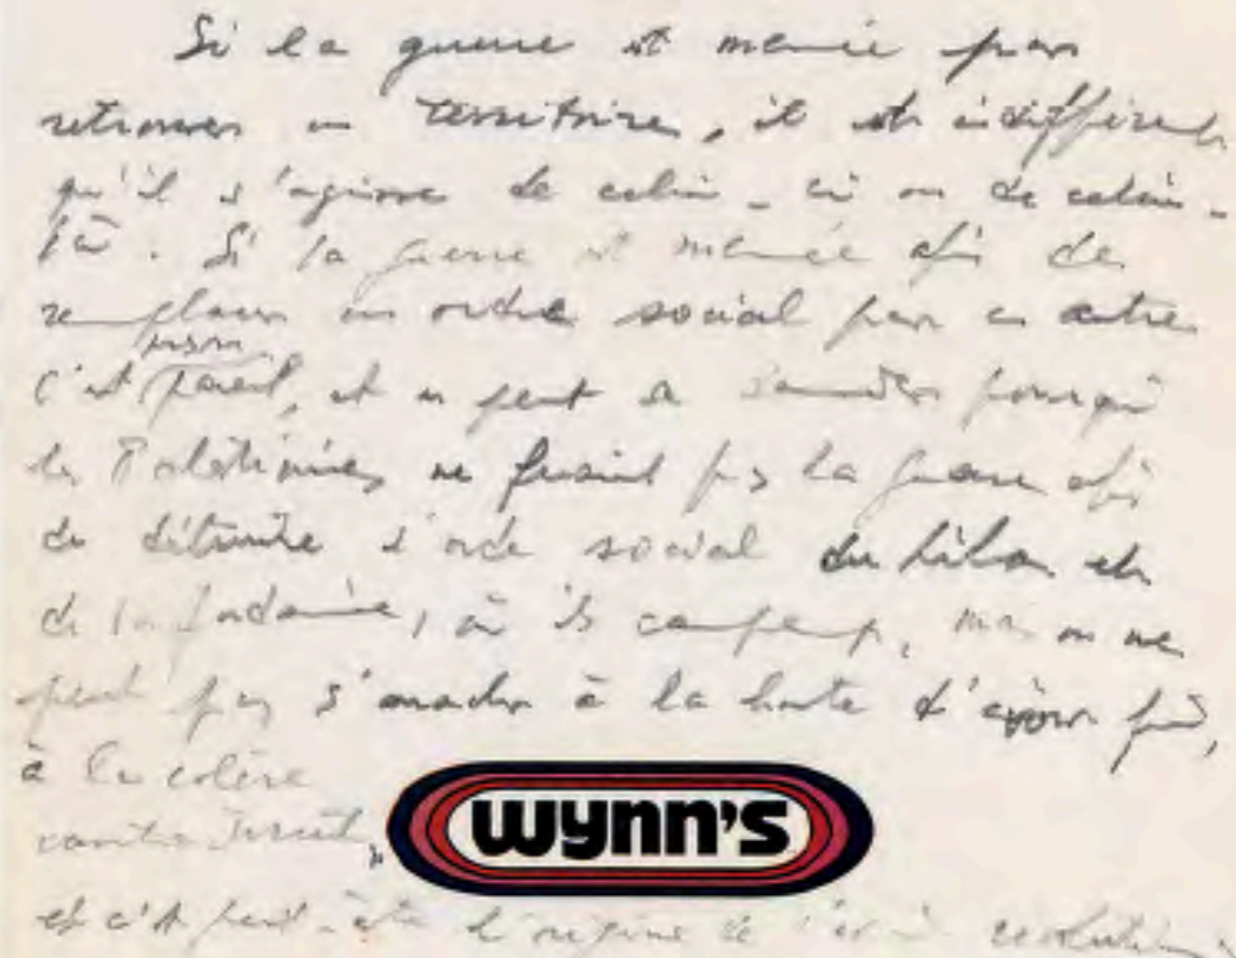 Si la guerre est menée pour
retrouver un territoire, il est indifférent
qu'il s'agisse de celui-ci ou de celui-
là. Si la guerre est menée afin de
remplacer un ordre social par un autre
c'est pareil, et on peut se demander pourquoi
les Palestiniens ne feraient pas la guerre afin
de détruire l'ordre social du Liban et
de la Jordanie, où ils campent, mais on ne
peut pas s'arracher à la honte d'avoir fui,
à la colère
contre Israël,
wynn's
et c'est peut-être l'origine de révolution